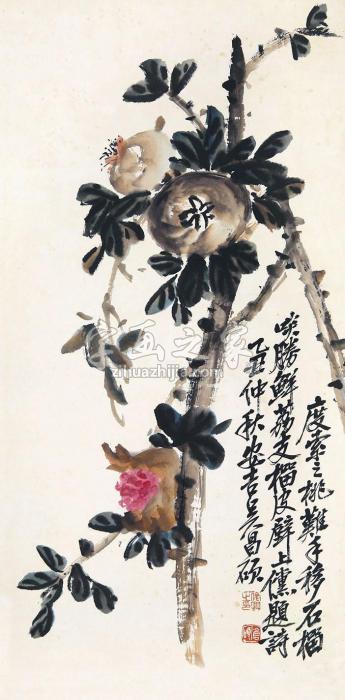 度索之桃難手移石榴
啖勝鮮荔支榴皮壁上僊題詩
乙丑仲秋安吉吳昌碩
字画之家
zihuazhijia.com